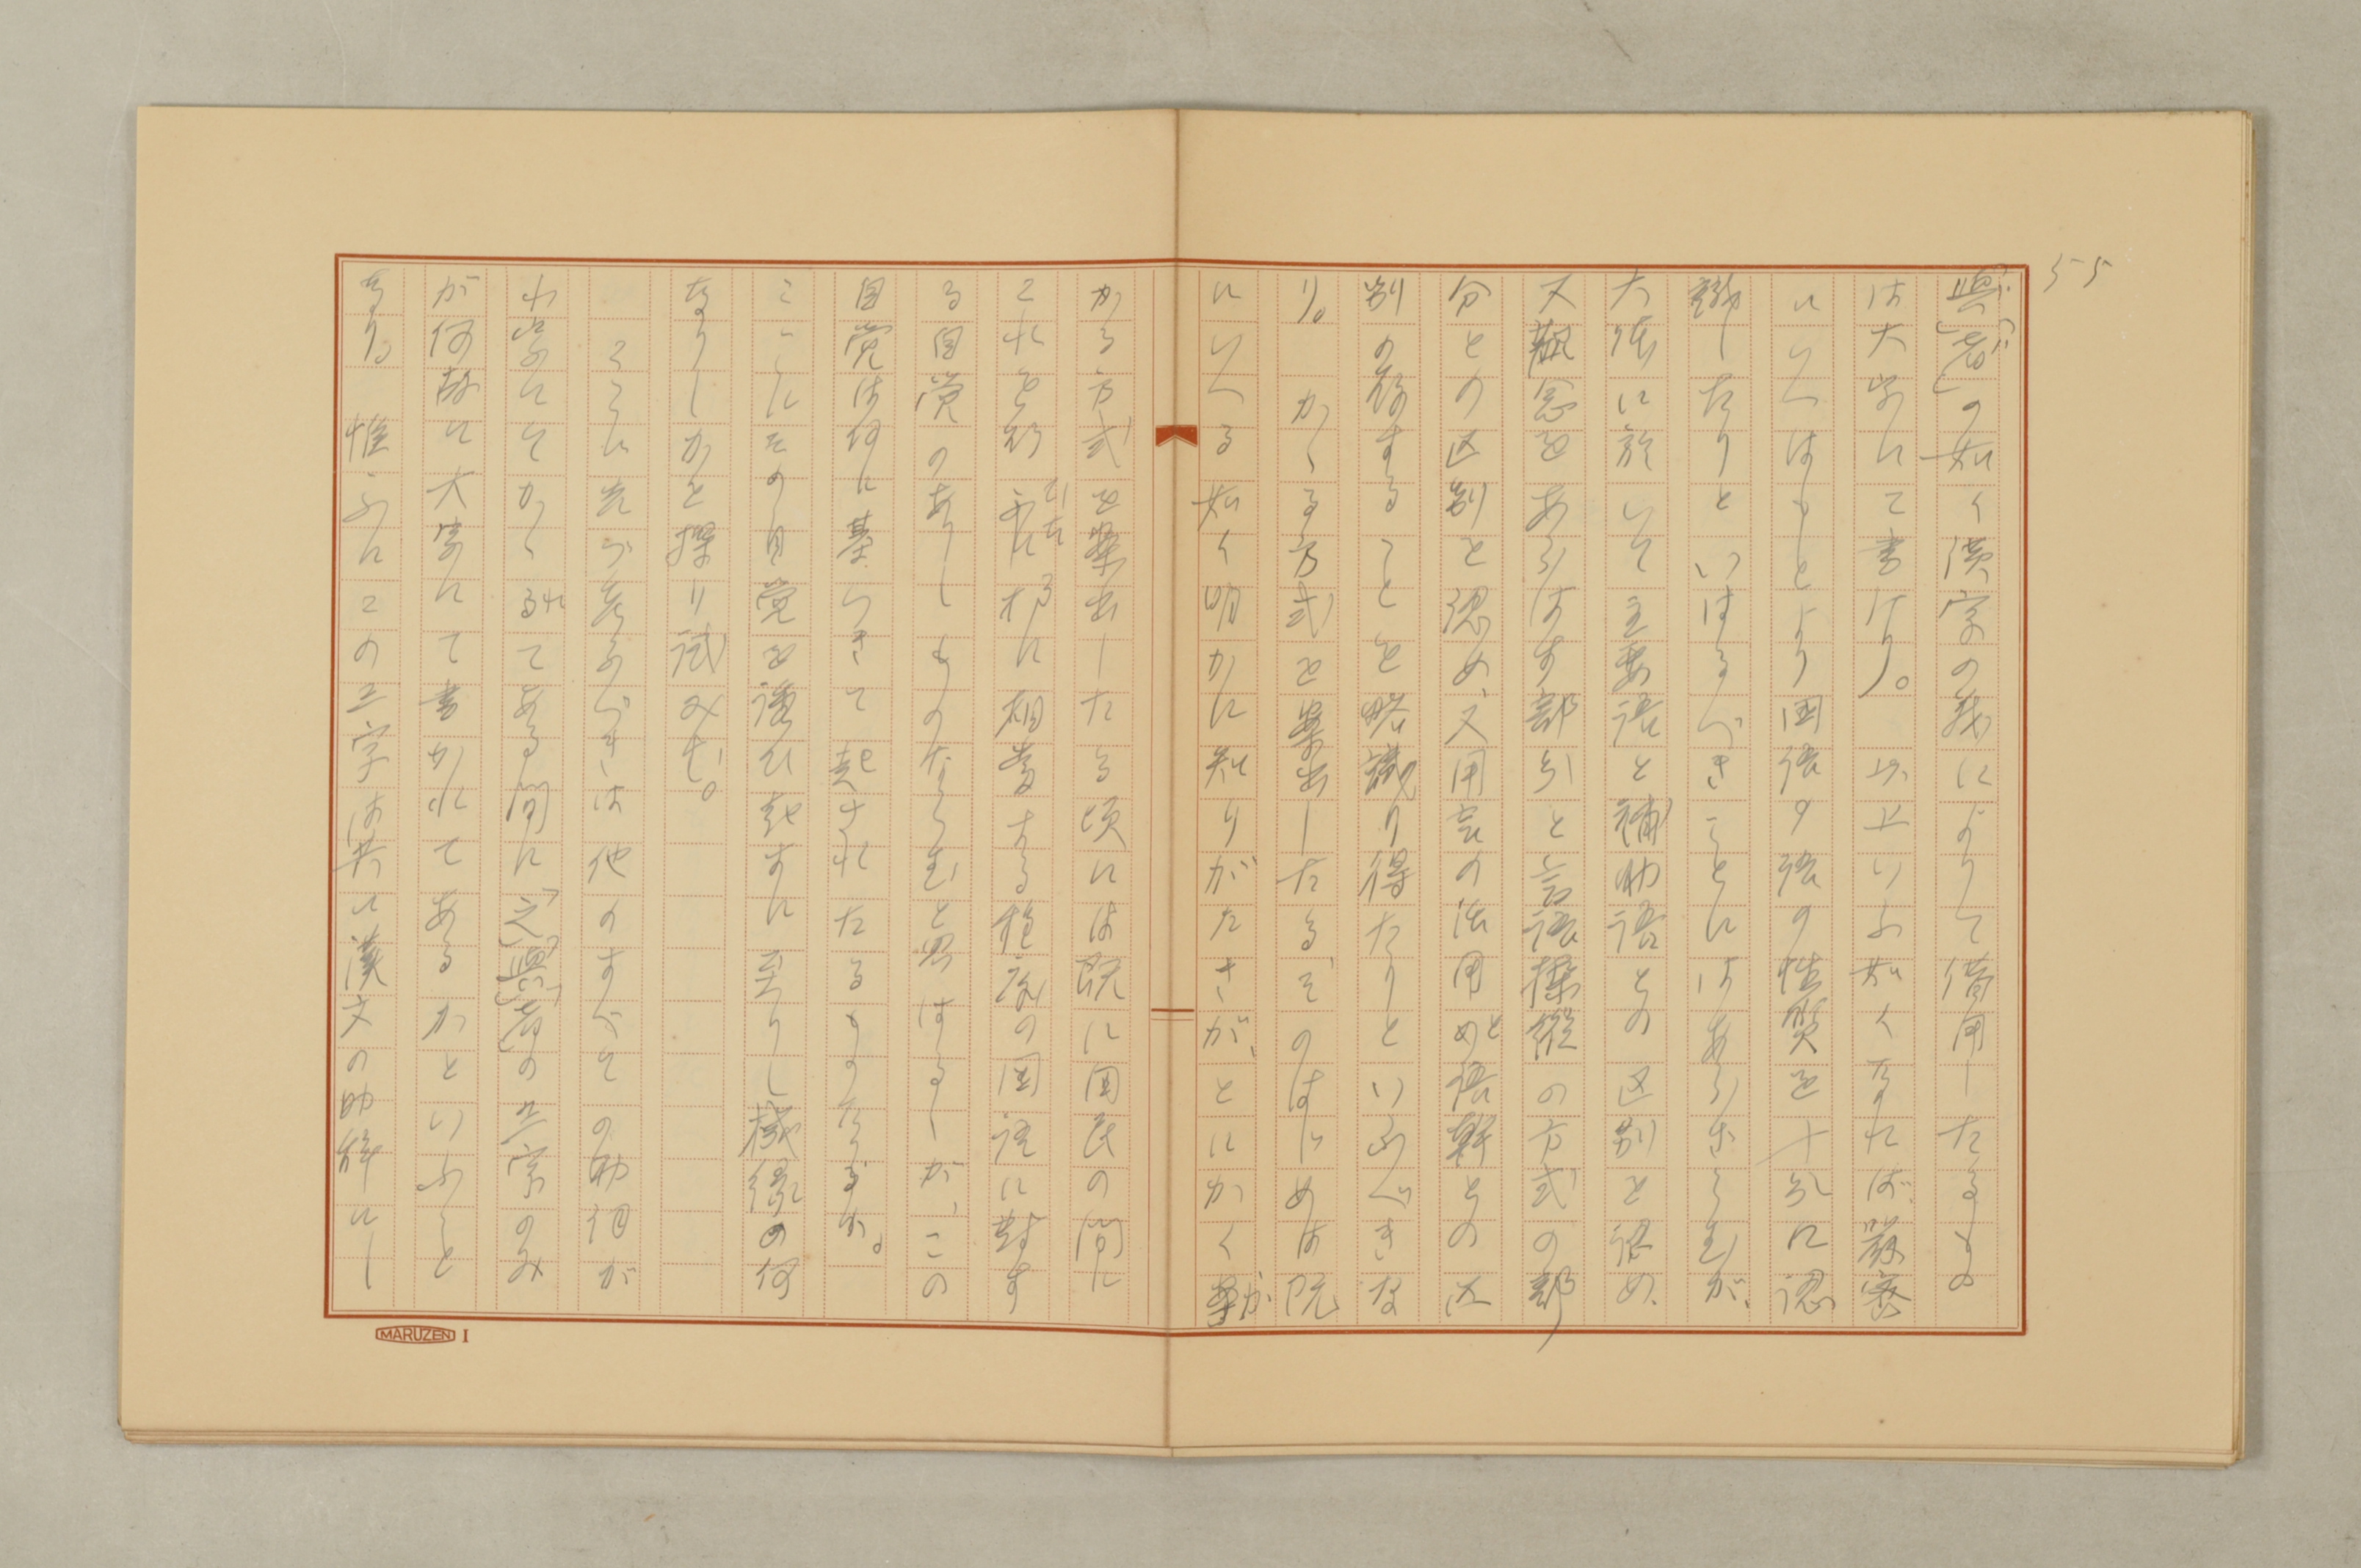 55
「與」「者」の如く漢字の義によりて借用したるもの
は大字にて書けり。以上いふ如くなれば、厳密
にいへばもとより国語の語の性質を十分に認
識したりといはるべきことにはあらざらむが、
大体に於いて主要語と補助語との区別を認め、
又観念をあらはす部分と言語操縦の方式の部
分との区別を認め、又用言の活用と語幹との区
別の存することを略識り得たりといふべきな
り。かゝる方式を案出したるそのはじめは既
にいへる如く明かに知りがたきが、とにかくか
かる方式を案出したる頃には既に国民の間に
これを行ふに相当する程度の国語に対す
る自覚のありしものならむと思はるゝが、この
自覚は何に基づきて起されたるものなるか。
ここにその自覚を誘ひ起すに至りし機縁の何
なりしかを探り試みむ。
ここに先づ考ふべきは他のすべての助詞が
小字にてかゝれてある間に「之」「與」「者」の三字のみ
が何故に大字にて書かれてあるかといふこと
なり。惟ふにこの三字は共に漢文の助辞にし
MARUZEN I